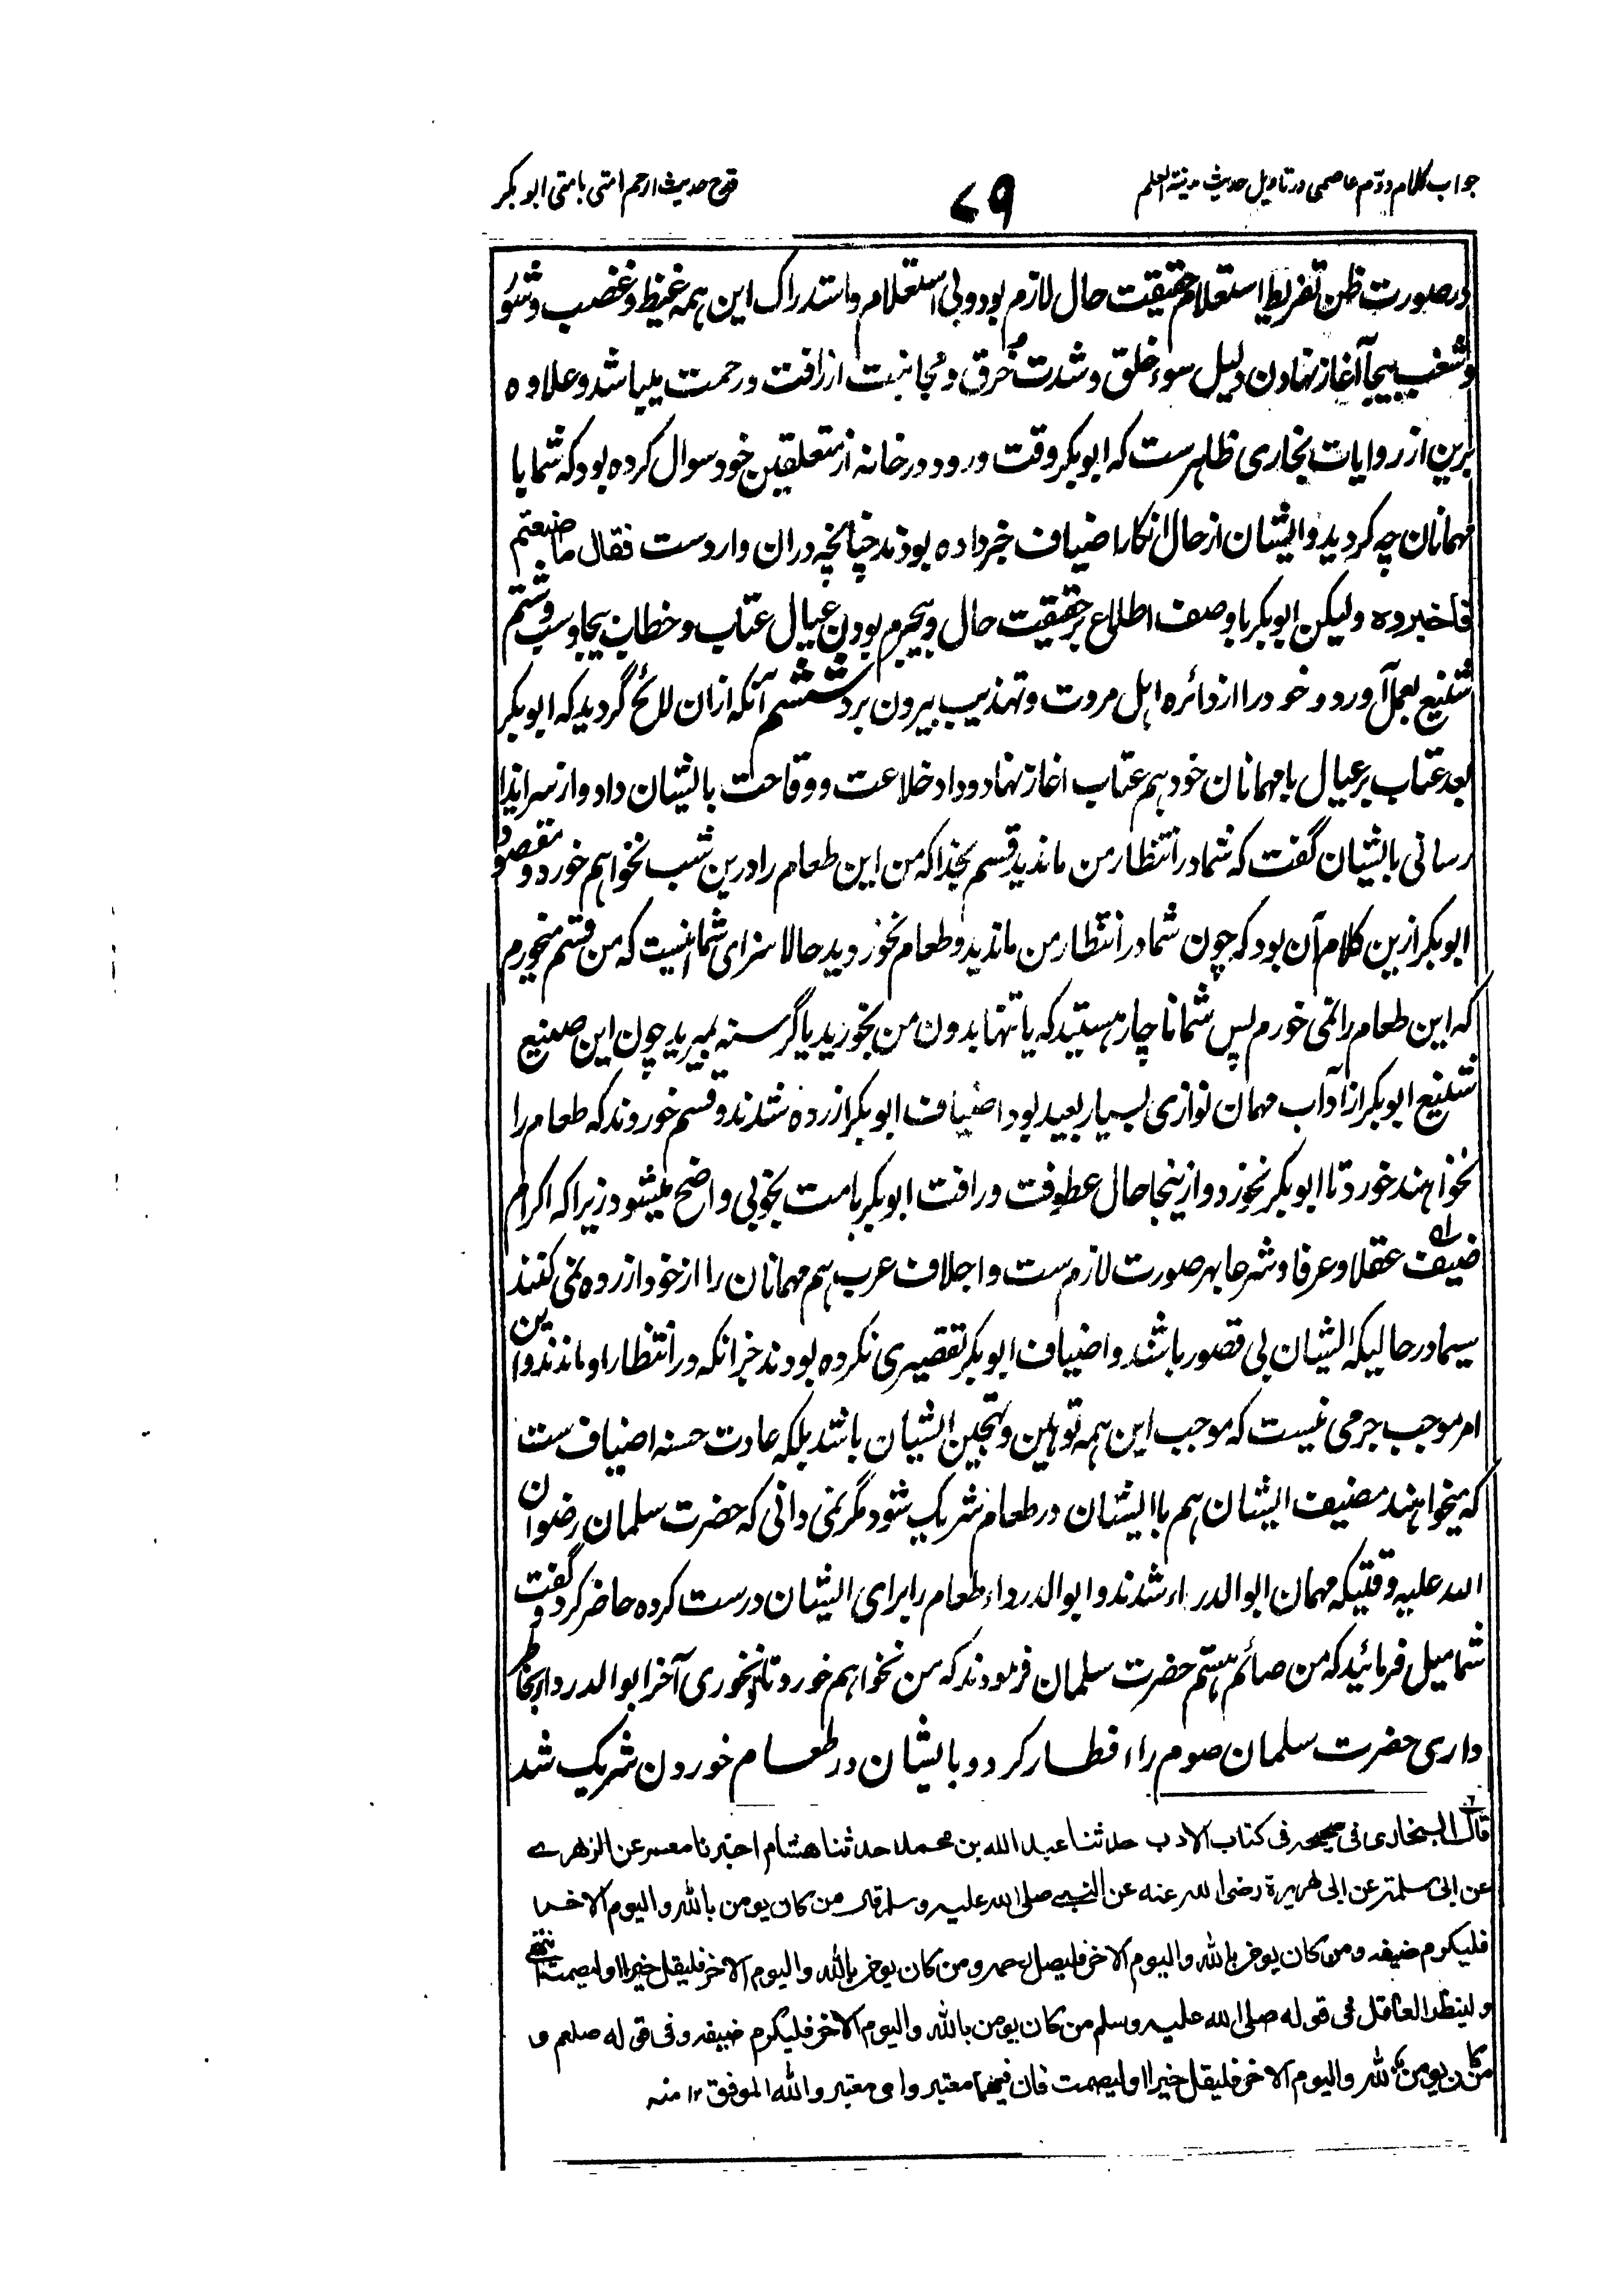 جواب کلام دوم عاصمی در تاویل حدیث مدینة العلم
۷۹
قدح حدیث ارحم امتی بامتی ابوبکر
در صورت ظن تفریط استعلام حقیقت حال لازم بود و بی استعلام و استدراک این همه غیظ و غضب و شور
و شغب بیجا آغاز نهادن دلیل سوء خلق و شدت خرق و مجانبت از رافت و رحمت میباشد و علاوه
برین از روایات بخاری ظاهرست که ابوبکر وقت ورود در خانه از متعلقین خود سوال کرده بود که شما با
مهمانان چه کردید و ایشان از حال انکار اضیاف خبر داده بودند چنانچه دران واردست فقال ما صنعتم
فاخبروه ولیکن ابوبکر با وصف اطلاع بر حقیقت حال و بیجرم بودن عیال عتاب و خطاب بیجا و سب و شتم
شنیع بعمل آورد و خود را از دائره اهل مروت و تهذیب بیرون برد ششم آنکه ازان لائح گردید که ابوبکر
بعد عتاب بر عیال با مهمانان خود هم عتاب اغاز نهاد و داد خلاعت و وقاحت بایشان داد و از سر ایذا
رسانی بایشان گفت که شما در انتظار من ماندید قسم بخدا که من این طعام را درین شب نخواهم خورد و مقصود
ابوبکر ازین کلام آن بود که چون شما در انتظار من ماندید و طعام نخوردید حالا سزای شما اینست که من قسم میخورم
که این طعام را نمی خورم پس شما ناچار هستید که یا تنها بدون من بخورید یا گرسنه بمیرید چون این صنیع
شنیع ابوبکر از آداب مهمان نوازی بسیار بعید بود اضیاف ابوبکر ازرده شدند و قسم خوردند که طعام را
نخواهند خورد تا ابوبکر نخورد و ازینجا حال عطوفت و رافت ابوبکر بامت بخوبی واضح میشود زیرا که اکرام
ضیف عقلا و عرفا و شرعا بهر صورت لازم ست و اجلاف عرب هم مهمانان را از خود ازرده نمی کنند
سیما در حالیکه ایشان بی قصور باشند و اضیاف ابوبکر تقصیری نکرده بودند جز انکه در انتظار او ماندند و این
امر موجب جرمی نیست که موجب این همه توهین و تهجین ایشان باشد بلکه عادت حسنه اضیاف ست
که میخواهند مضیف ایشان هم با ایشان در طعام شریک شود مگر نمی دانی که حضرت سلمان رضوان
الله علیه وقتیکه مهمان ابوالدرداء شدند و ابوالدرداء طعام را برای ایشان درست کرده حاضر کرد و گفت
شما میل فرمائید که من صائم هستم حضرت سلمان فرمودند که من نخواهم خورد تا تو نخوری آخر ابوالدرداء بخاطر
داری حضرت سلمان صوم را افطار کرد و با ایشان در طعام خوردن شریک شد
قال البخاری فی صحیحه فی کتاب الادب حدثنا عبد الله بن محمد حدثنا هشام اخبرنا معمر عن الزهرے
عن ابی سلمة عن ابی هریرة رضی الله عنه عن النبے صلی الله علیه وسلم قال من کان یومن بالله والیوم الاخر
فلیکرم ضیفه ومن کان یومن بالله والیوم الاخر فلیصل رحمه ومن کان یومن بالله والیوم الاخر فلیقل خیرا او لیصمت انتهی
ولینظر العاقل فی قوله صلی الله علیه وسلم من کان یومن بالله والیوم الاخر فلیکرم ضیفه وفی قوله صلعم و
من کان یومن بالله والیوم الاخر فلیقل خیرا او لیصمت فان فیهما معتبر وای معتبر والله الموفق ۱۲ منه